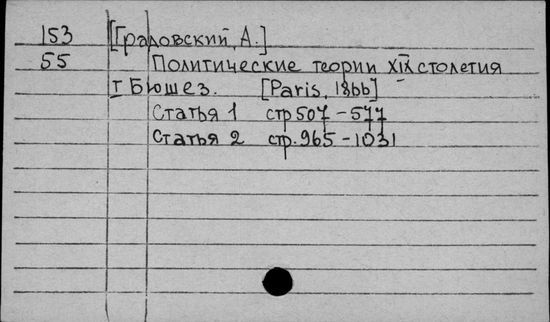 153 [Градовский, А.]
55 Политические теории XIX столетия
I Бюшез. [Paris, 1866]
Статья 1 стр 507-577
Статья 2 стр. 965-1031